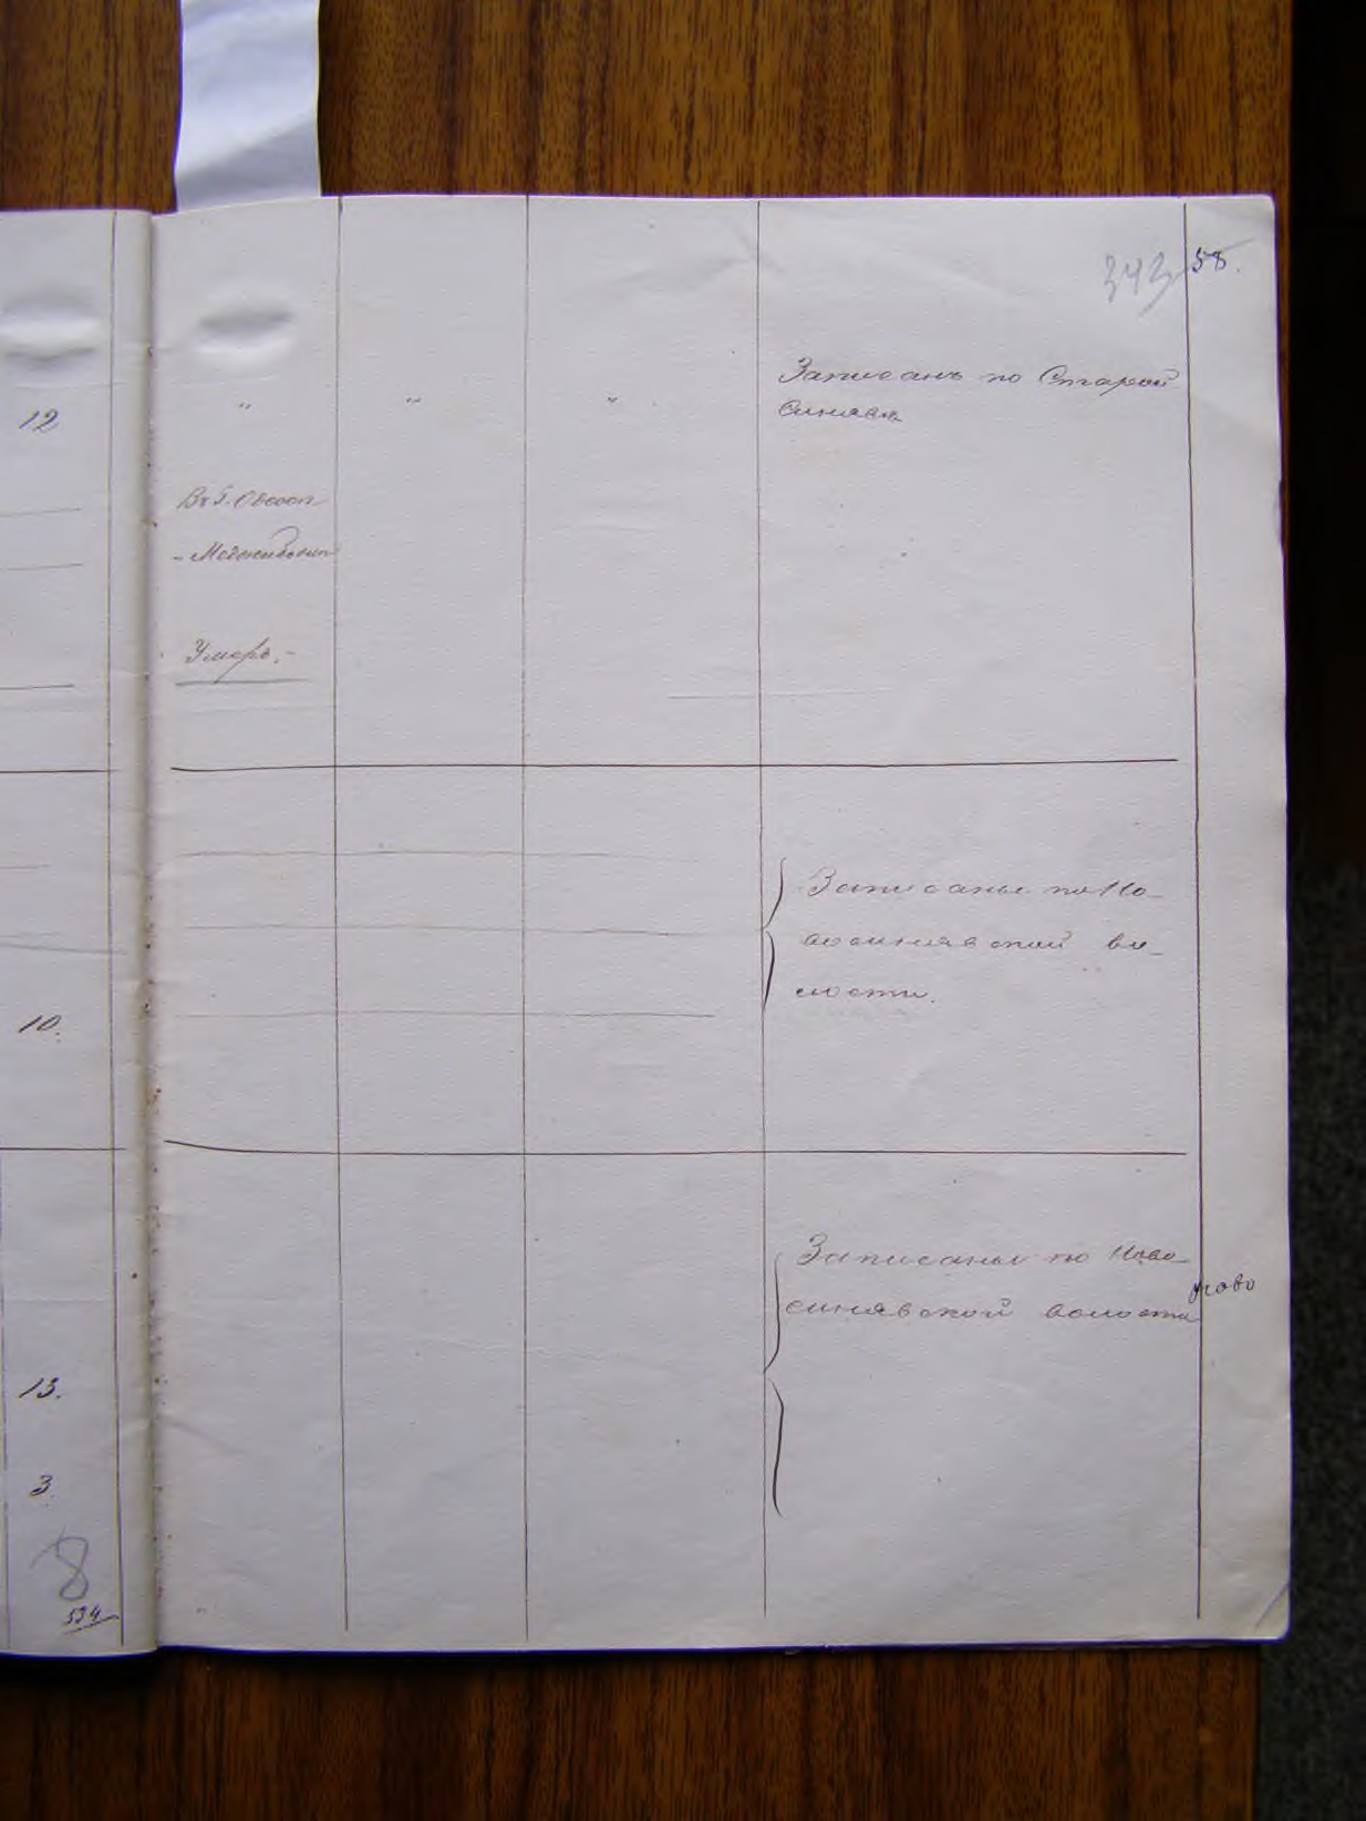 343 58.
Записанъ по Старой
Синявѣ
12 " " "
Въ г.
- Меджибожѣ
Умеръ. -
Записаны по Но-
восинявской во-
лости.
10.
Записаны по Ново-
синявской волости
13.
3
8
534